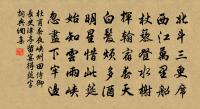 北斗三更席
西江萬里船
杖藜登水榭
揮翰宿春天
白髮煩多酒
明星惜此筵
始知雲雨峽
忽盡下牢邊
杜甫春夜峽州田侍御
長史津亭留宴得筵字
詞典網集